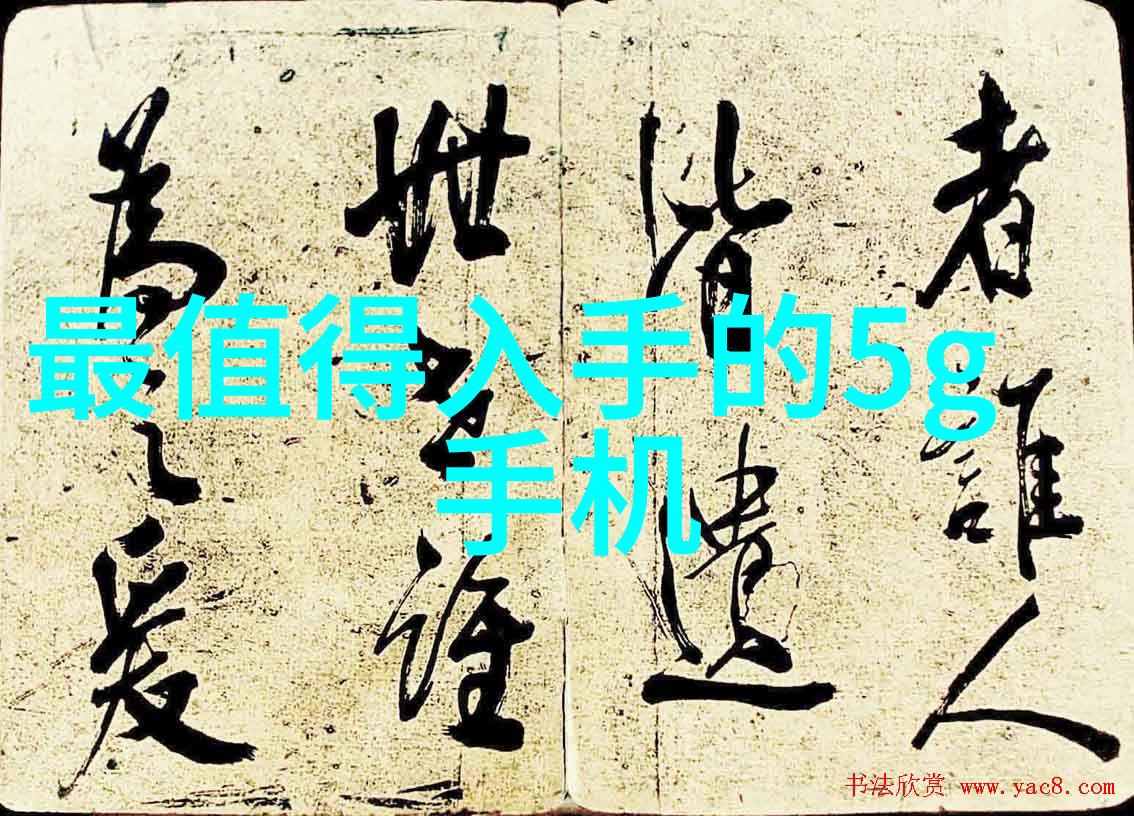 最值得入手的5g
手机
者誰人
皆遺
世誰
為之爰
书法欣赏 www.yac8.com